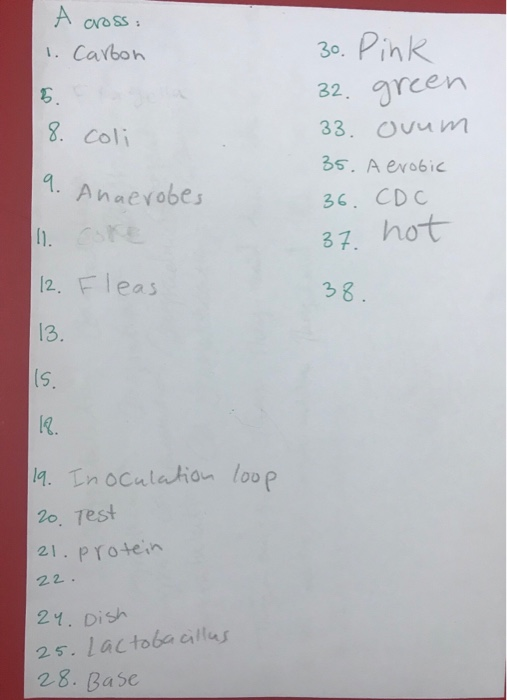 Across:
1. Carbon
5.
8. coli
9. Anaerobes
11. core
12. Fleas
13.
15.
18.
19. Inoculation loop
20. Test
21. protein
22.
24. Dish
25. Lactobacillus
28. Base
30. Pink
32. green
33. ovum
35. Aerobic
36. CDC
37. hot
38.